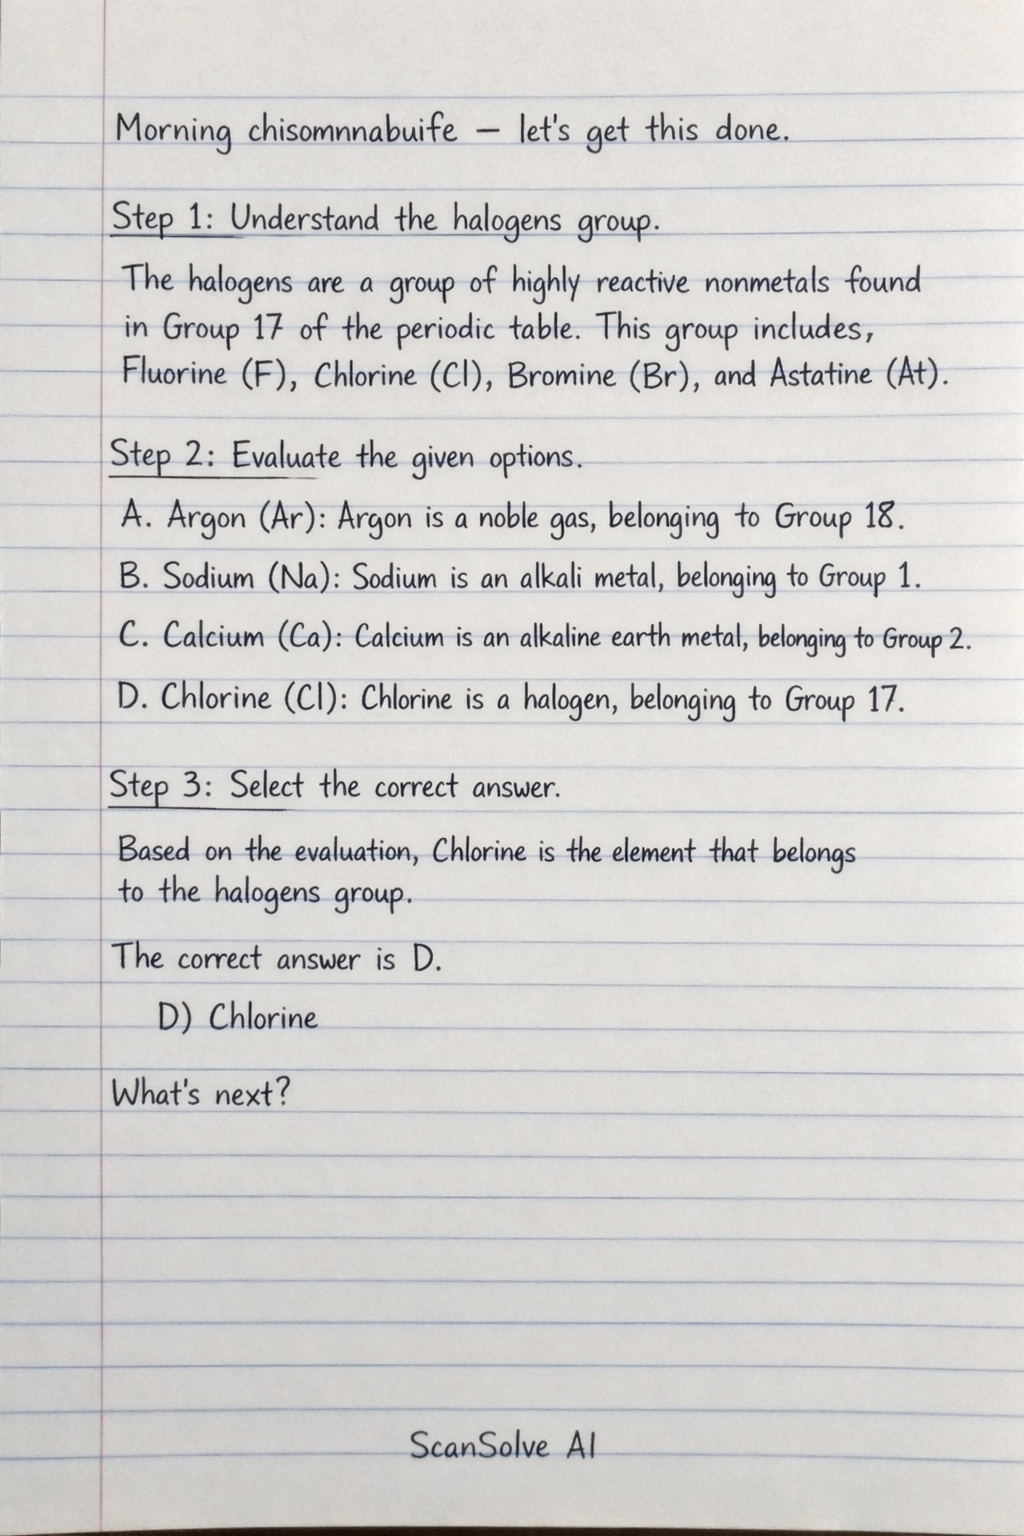 Morning chisomnnabuife – let's get this done.
Step 1: Understand the halogens group.
The halogens are a group of highly reactive nonmetals found
in Group 17 of the periodic table. This group includes,
Fluorine (F), Chlorine (Cl), Bromine (Br), and Astatine (At).
Step 2: Evaluate the given options.
A. Argon (Ar): Argon is a noble gas, belonging to Group 18.
B. Sodium (Na): Sodium is an alkali metal, belonging to Group 1.
C. Calcium (Ca): Calcium is an alkaline earth metal, belonging to Group 2.
D. Chlorine (Cl): Chlorine is a halogen, belonging to Group 17.
Step 3: Select the correct answer.
Based on the evaluation, Chlorine is the element that belongs
to the halogens group.
The correct answer is D.
D) Chlorine
What's next?
ScanSolve AI